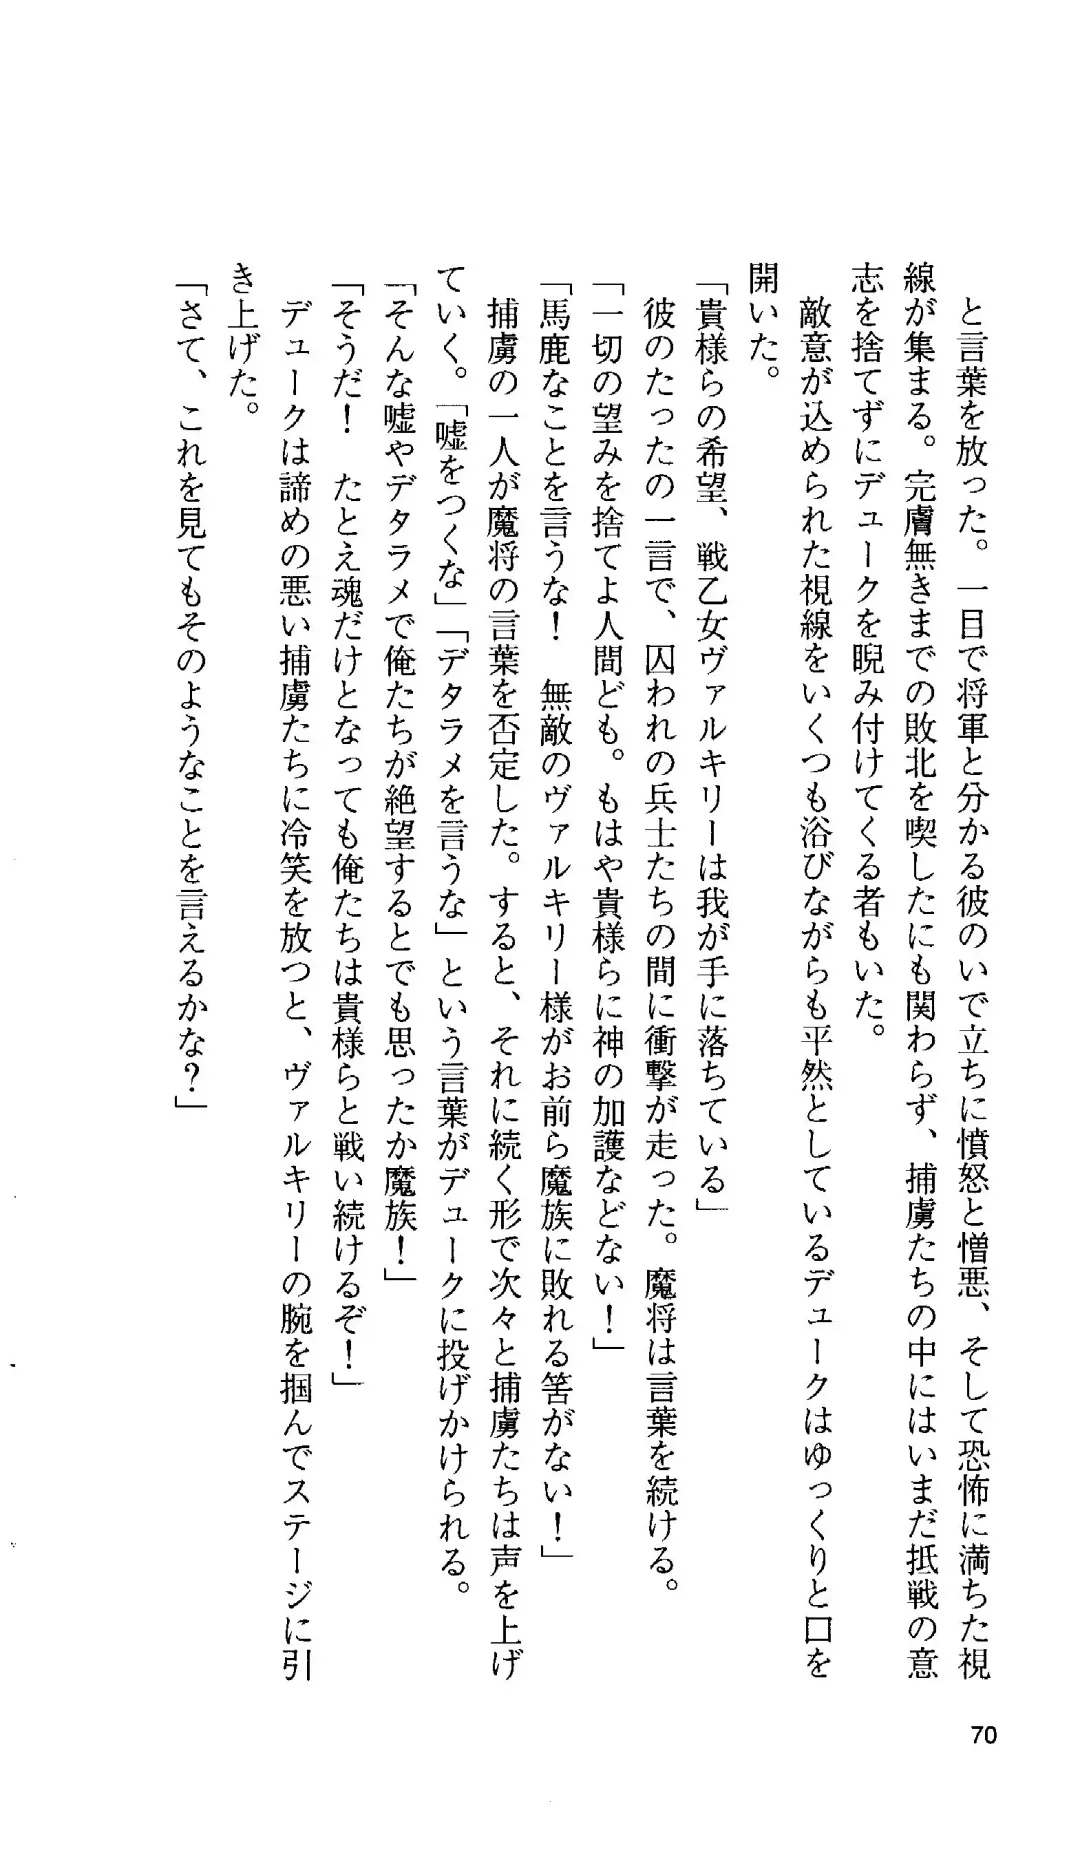 と言葉を放った。一目で将軍と分かる彼のいで立ちに憤怒と憎悪、そして恐怖に満ちた視
線が集まる。完膚無きまでの敗北を喫したにも関わらず、捕虜たちの中にはいまだ抵戦の意
志を捨てずにデュークを睨み付けてくる者もいた。
　敵意が込められた視線をいくつも浴びながらも平然としているデュークはゆっくりと口を
開いた。
「貴様らの希望、戦乙女ヴァルキリーは我が手に落ちている」
　彼のたったの一言で、囚われの兵士たちの間に衝撃が走った。魔将は言葉を続ける。
「一切の望みを捨てよ人間ども。もはや貴様らに神の加護などない！」
「馬鹿なことを言うな！　無敵のヴァルキリー様がお前ら魔族に敗れる筈がない！」
　捕虜の一人が魔将の言葉を否定した。すると、それに続く形で次々と捕虜たちは声を上げ
ていく。「嘘をつくな」「デタラメを言うな」という言葉がデュークに投げかけられる。
「そんな嘘やデタラメで俺たちが絶望するとでも思ったか魔族！」
「そうだ！　たとえ魂だけとなっても俺たちは貴様らと戦い続けるぞ！」
　デュークは諦めの悪い捕虜たちに冷笑を放つと、ヴァルキリーの腕を掴んでステージに引
き上げた。
「さて、これを見てもそのようなことを言えるかな？」
70